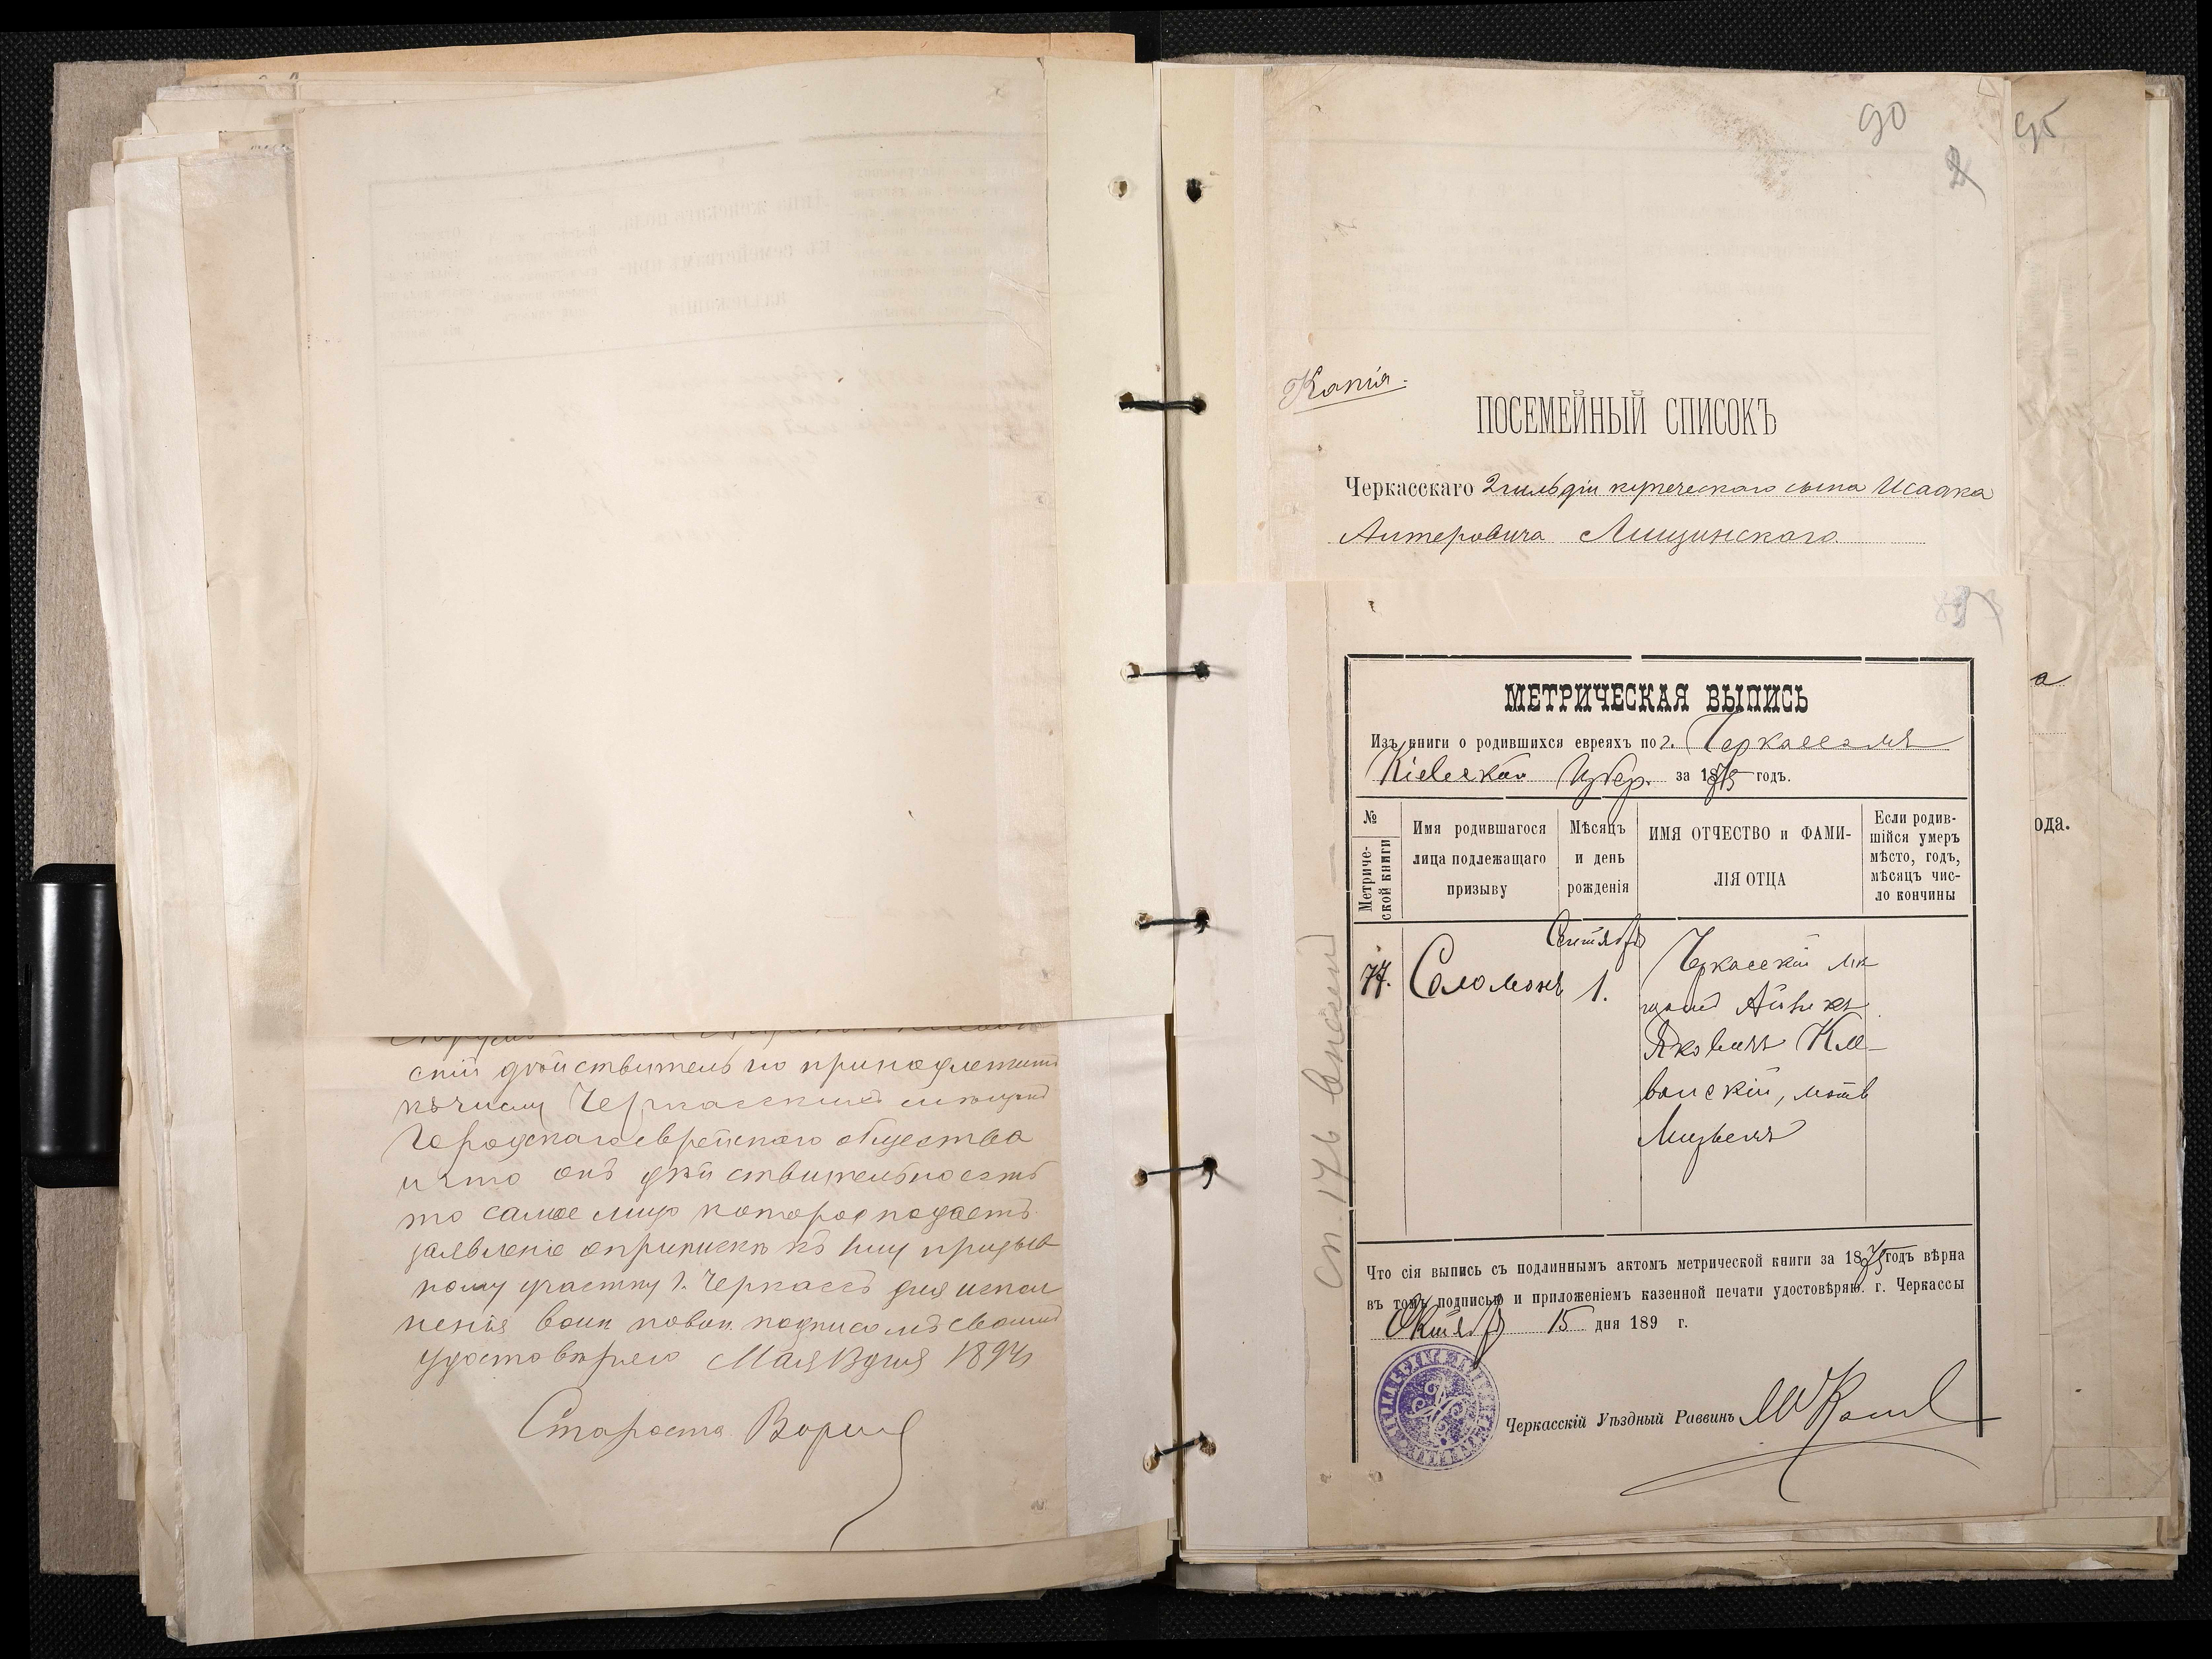 скій дѣйствительно принадлежитъ
къ числу Черкасскихъ мѣщанъ
Городскаго еврейскаго общества
и что онъ дѣйствительно есть
то самое лицо которое подаетъ
заявленіе о припискѣ къ призыв
ному участку г. Черкассъ для испол
ненія воин повин подписомъ своимъ
удостовѣряю Мая дня 1894
Староста
90
95
Копія.
ПОСЕМЕЙНЫЙ СПИСОКЪ
Черкасскаго 2 гильдіи купеческаго сына Исаака
Антеровича Лищинскаго
МЕТРИЧЕСКАЯ ВЫПИСЬ
Изъ книги о родившихся евреяхъ по г. Черкассамъ
Кіевской Губер. за 1875 годъ.
№ Метриче-ской книги
Имя родившагося лица подлежащаго призыву
Мѣсяцъ и день рожденія
ИМЯ ОТЧЕСТВО и ФАМИ-ЛІЯ ОТЦА
Если родив-шійся умеръ мѣсто, годъ, мѣсяцъ чис-ло кончины
77.
Соломонъ
Сентября
1.
Черкасскій мѣ-
щанинъ
Яковичъ
ванскій, мать
Что сія выпись съ подлиннымъ актомъ метрической книги за 1875 годъ вѣрна
въ томъ подписью и приложеніемъ казенной печати удостовѣряю. г. Черкассы
Октября 15 дня 189 г.
Черкасскій Уѣздный Раввинъ
а
ода.